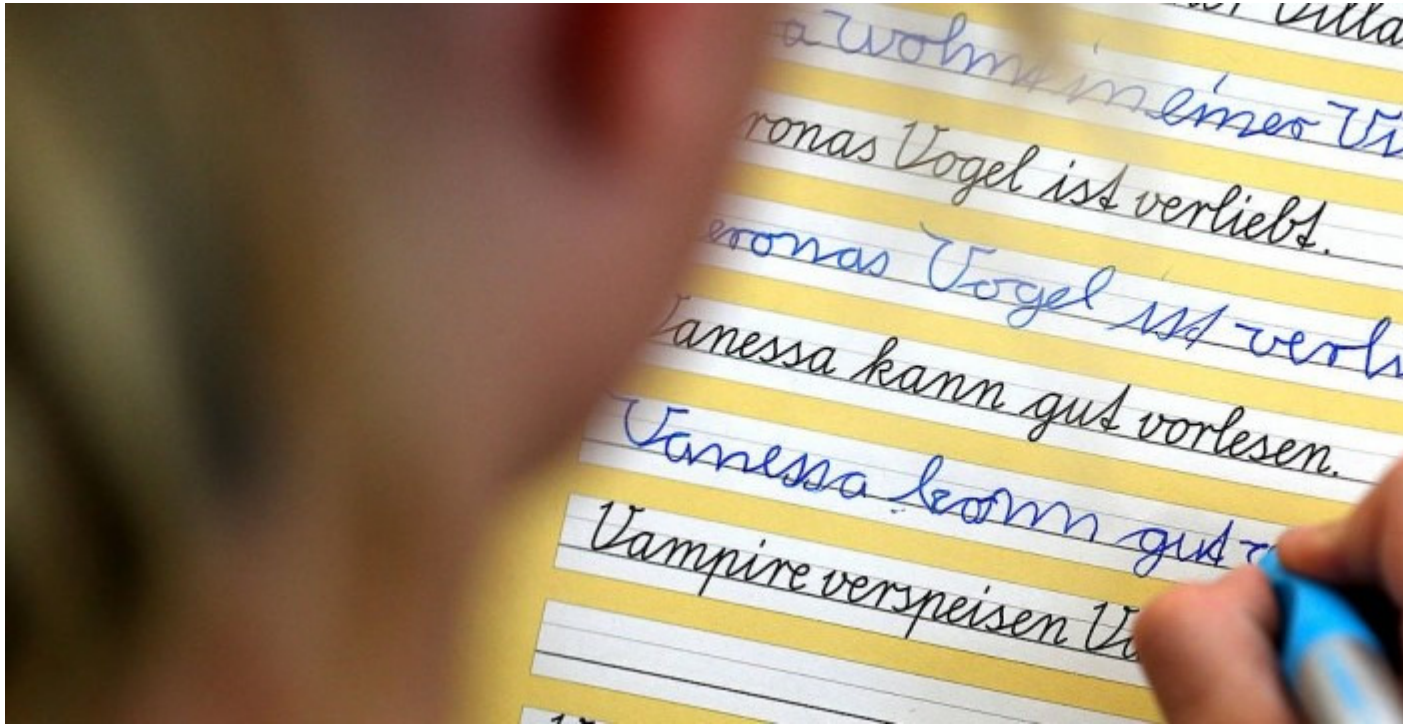 Villa
wohnt in einer
Vogel ist verliebt.
Vogel ist
Vanessa kann gut vorlesen.
Vanessa kann gut
Vampire verspeisen